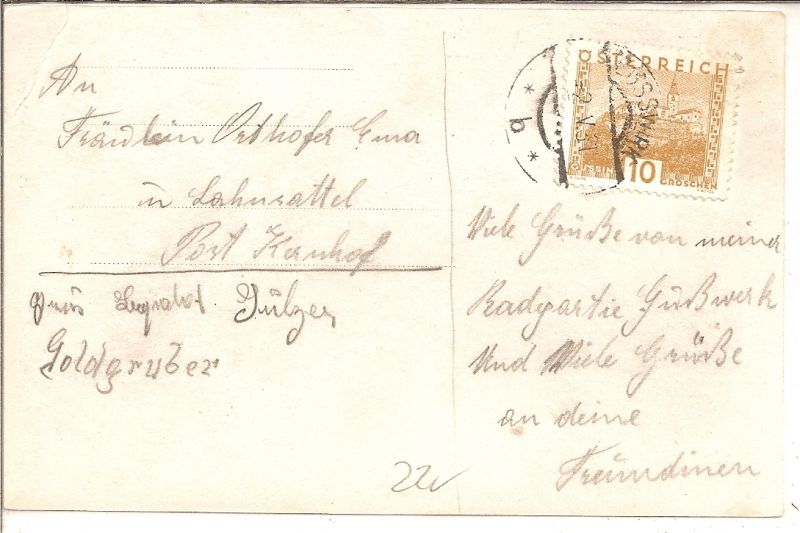 An
Fräulein Orthofer Erna
in Lahnsattel
Post Kernhof
Sulzer
Goldgruber
22
ÖSTERREICH
GÜSSING
10
GROSCHEN
b
Viele Grüße von meiner
Radpartie Gußwerk
Und Viele Grüße
an deine
Freundinen